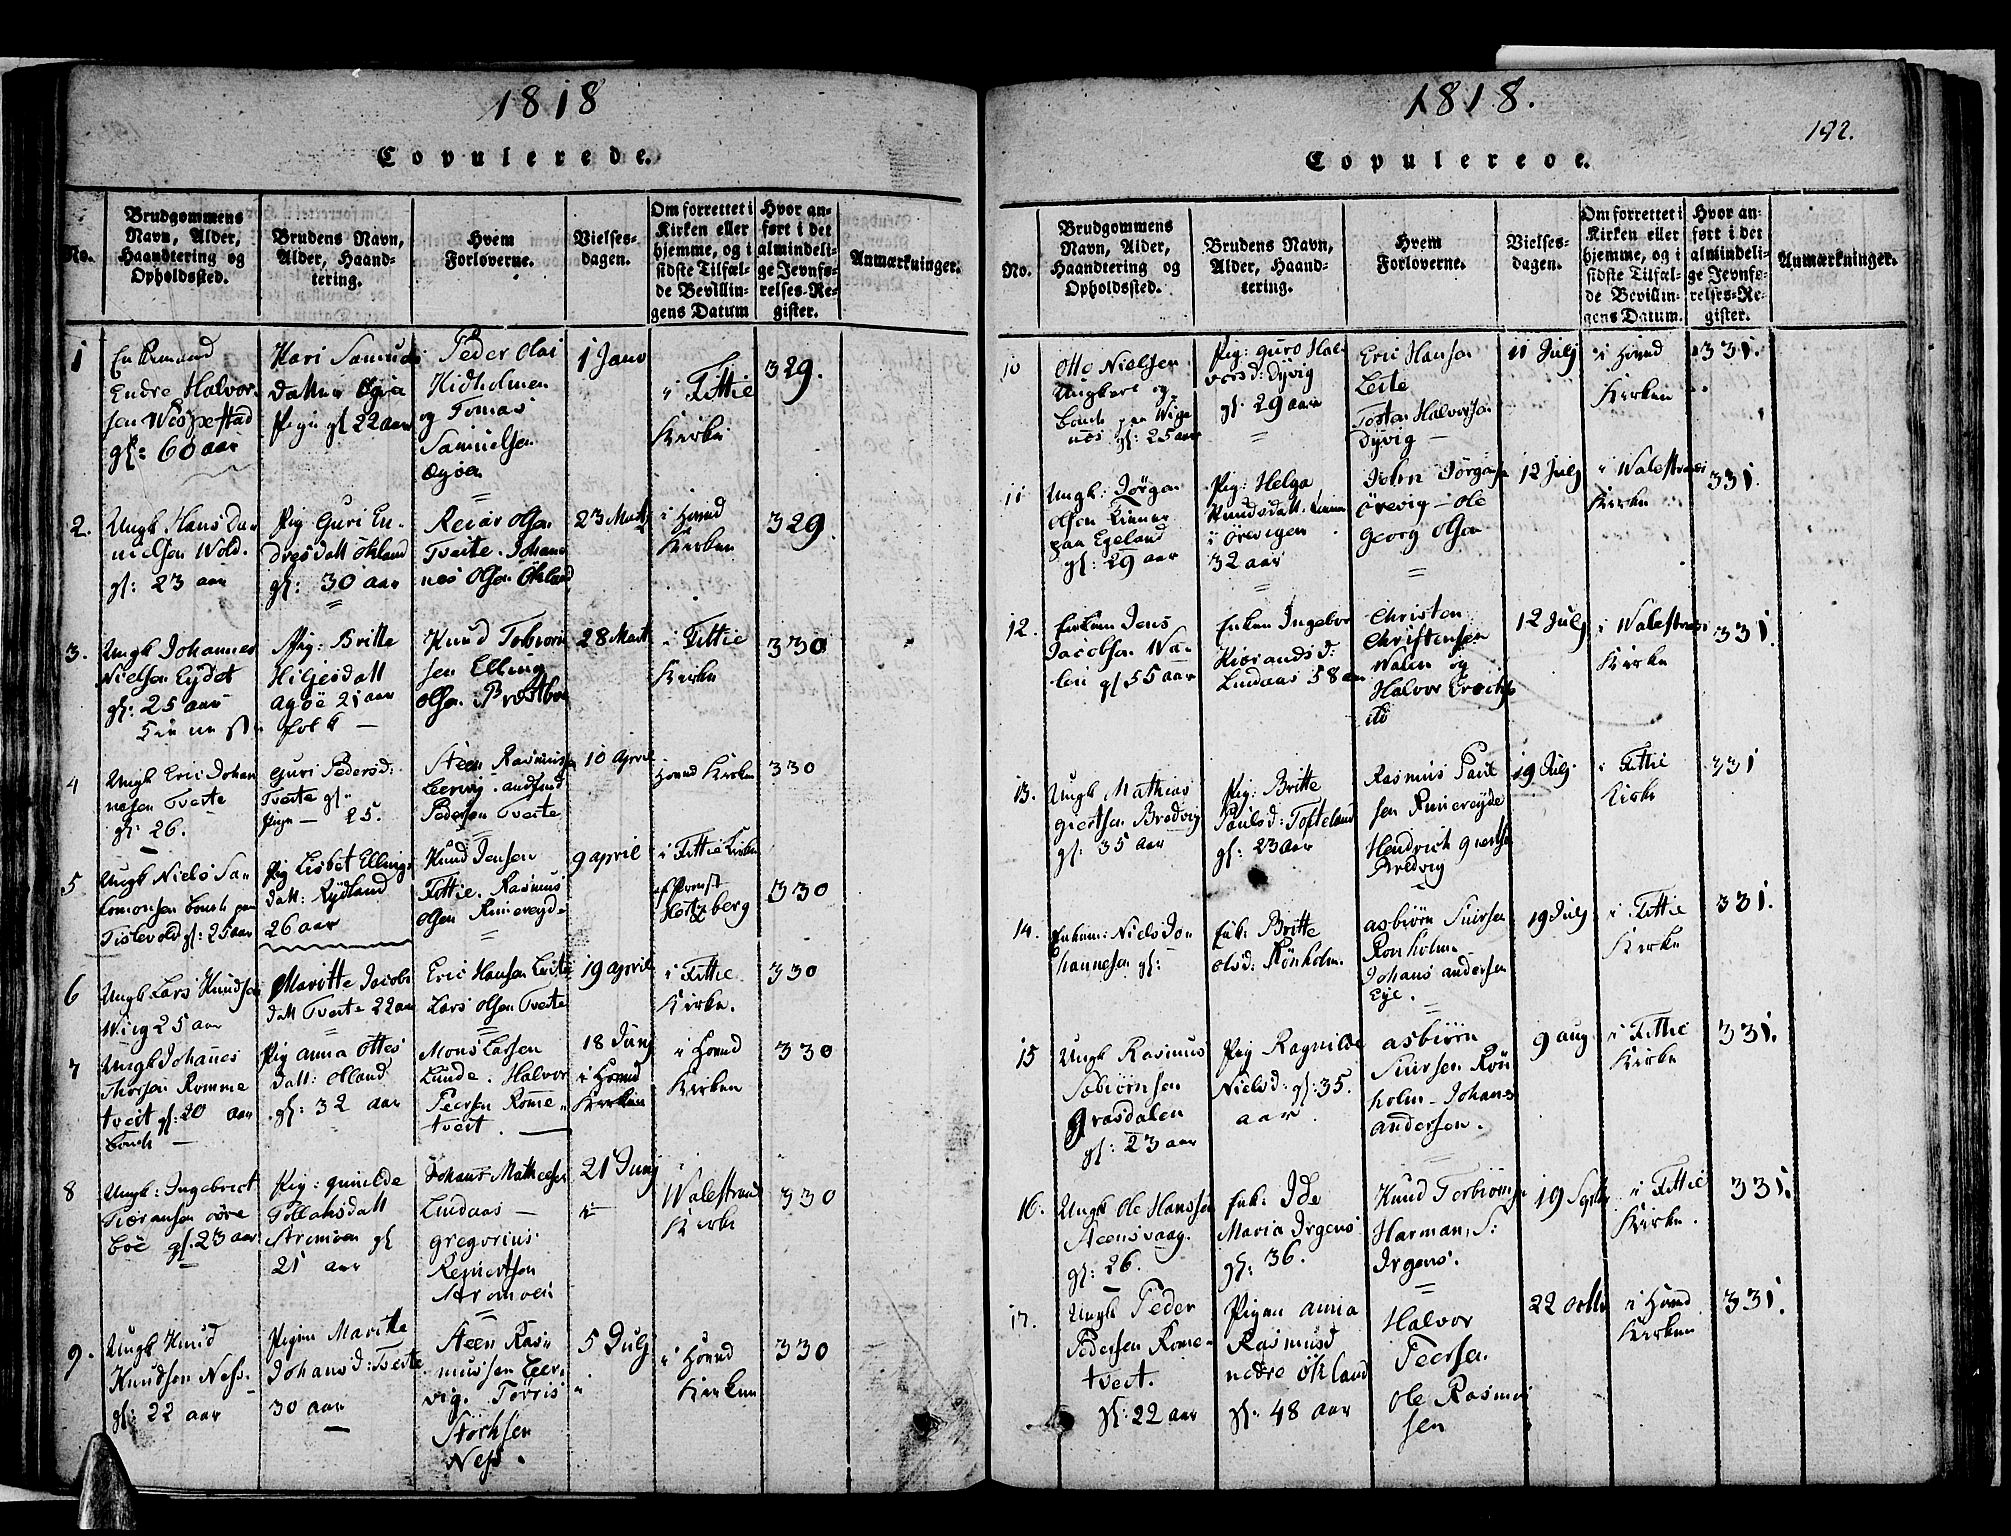 1818
Copulerede.
No.
Brudgommens
Navn, Alder,
Haandtering og
Opholdssted.
Brudens Navn,
Alder, Haand-
tering.
Hvem
Forloverne.
Vielses-
dagen.
Om forrettet i
Kirken eller
hjemme, og i
sidste Tilfæl-
de Bevillin-
gens Datum
Hvor an-
ført i det
almindeli-
ge Jevnfø-
relses-Re-
gister.
Anmærkninger.
1
Enkemand
Endre Halvor-
sen Wespestad
gl: 60 aar
Kari Samuels
datter Øgia
Pige gl 22 aar
Peder Olai
Hidholmen
og Tomas
Samuelsen
Øgøen
1 Janv
i Fittie
Kirke
329.
2.
Ungk Hans Da-
nielsen Wold.
gl: 23 aar
Pig Guri En-
dresdatt Økland
gl: 30 aar
Reiar Olsen
Tveite. Johan-
nes Olsen Økland
23 Marti
i Hovud
Kirken
329.
3.
Ungk Johannes
Nielsen Eydet
gl: 25 aar
Pig: Britte
Hiljesdatt
Agöe 21 aar
folk —
Knud Tobiorn
sen Elling
Olsen
28 Mart
i Fittie
Kirke
330
4
Ungk Eric Johan
nesen Tveite
gl: 26.
Guri Pedersd:
Tveite gl:
Pige — 25.
Steen Rasmussen
Leervig. Amfind
Pedersen Tveite
10 April
Hovud Kirken
330
5
Ungk Niels Sa-
lomonsen bonde paa
Tislevold gl: 25 aar
Pig Lisbet Ellings
datt: Rydland
26 aar
Knud Jensen
Fittie. Rasmus
Olsen Rimereyde
9 april
i Fittie Kirken
af Provst
Hertzberg
330
6
Ungk Lars Knudsen
Wiig 25 aar
Maritte Jacobs
datt Tveite 22 aar
Eric Hansen Leite
Lars Olsen Tveite
19 april
i Fittie
Kirke.
330
7
Ungk Johanes
Thorsen Romme
tveit gl: 20 aar
bonde —
Pig anna Ottes
datt: Olland
gl: 32 aar
Mons Larsen
Lunde. Halvor
Peersen Rome-
tveit.
18 Junj
i Hovud
Kirken
i Hovud
Kirken
330
8
Ungk: Ingebrict
Tiøransen øvre
bøe gl. 23 aar
Pig: gunilde
Tollaksdatt
Strömøen gl
21 aar
Johans Mathesen
Lindaas —
gregorius
Reniertsen
Strömøen
21 Junj
Walestrand
Kirke
330
9.
Ungk Knud
Knudsen Ness.
gl: 22 aar
Pigen Maritte
Johansd: Tveite
30 aar
Steen Ras-
mussen Leer-
vig. Torris
Störksen
Ness.
5 Julj
i Hovud
Kirken
330
1818.
192.
Copulerede.
No.
Brudgommens
Navn, Alder,
Haandtering og
Opholdssted.
Brudens Navn,
Alder, Haand-
tering.
Hvem
Forloverne.
Vielses-
dagen.
Om forrettet i
Kirken eller
hjemme, og i
sidste Tilfæl-
de Bevillin-
gens Datum.
Hvor an-
ført i det
almindeli-
ge Jevnfø-
relses-Re-
gister.
Anmærkninger.
10
Otto Nielsen
Ungkarl og
bonde paa Wiga
nes gl: 25 aar
Pig: guro Hal-
vorsd: Dyvig
gl: 29 aar
Eric Hansen
Leite
Tosten Halvorsen
Dyvig —
11 Julj
i Hovud
Kirken
331.
11
Ungk: Jörgen
Olsen Rinner
paa Egeland
gl: 29 aar
Pig: Helga
Knudsdatt
i Örevigen
32 aar
John Jörgensen
örevig — Ole
Georg Olsen
12 Julj
i Walestrand
Kirke
331.
12.
Enkem Jens
Jacobsen Wa-
len gl 55 aar
Enken Ingebor
Hiorandsd:
Lindaas 58 aar
Christen
Christensen
Walen og
Halvor
12 Julj
i Walestrand
Kirke
331.
13.
Ungk Mathias
giertsen Bredvig
gl: 35 aar
Pig: Britte
Paulsd: Tofteland
gl: 23 aar
Rasmus Paul
sen Rimereyde
Hendrich giertsen
Bredvig
19 Julj
i Fittie
Kirke
331
14.
Enkem: Niels Jo-
hannesen gl:
Enk: Britte
Olsd: Rönholm.
asbiörn Siursen
Ronholm
Johans andersen
Eye.
19 Julj
i Fittie
Kirke
331.
15
Ungk Rasmus
Tobiörnsen
grasdalen
gl: 23 aar
Pig Ragnilde
Nielsd: gl: 35.
aar
asbiörn
Siursen Rön
holm – Johans
andersen.
9 aug
i Fittie
Kirke
331.
16.
Ungk Ole Hanssen
Steensvaag.
gl: 26.
Enk: Ide
Maria Irgens
gl: 36.
Knud Torbiörnsen
Harman S:
Irgens.
19 Septbr
i Fittie
Kirke.
331.
17.
Ungk Peder
Pedersen Rome-
tveit.
gl: 22 aar
Pigen anna
Rasmusd
nedre ökland
gl: 48 aar
Halvor
Peersen
Ole Rasmus
sen
22 octbr
i Hovud
Kirken
331.